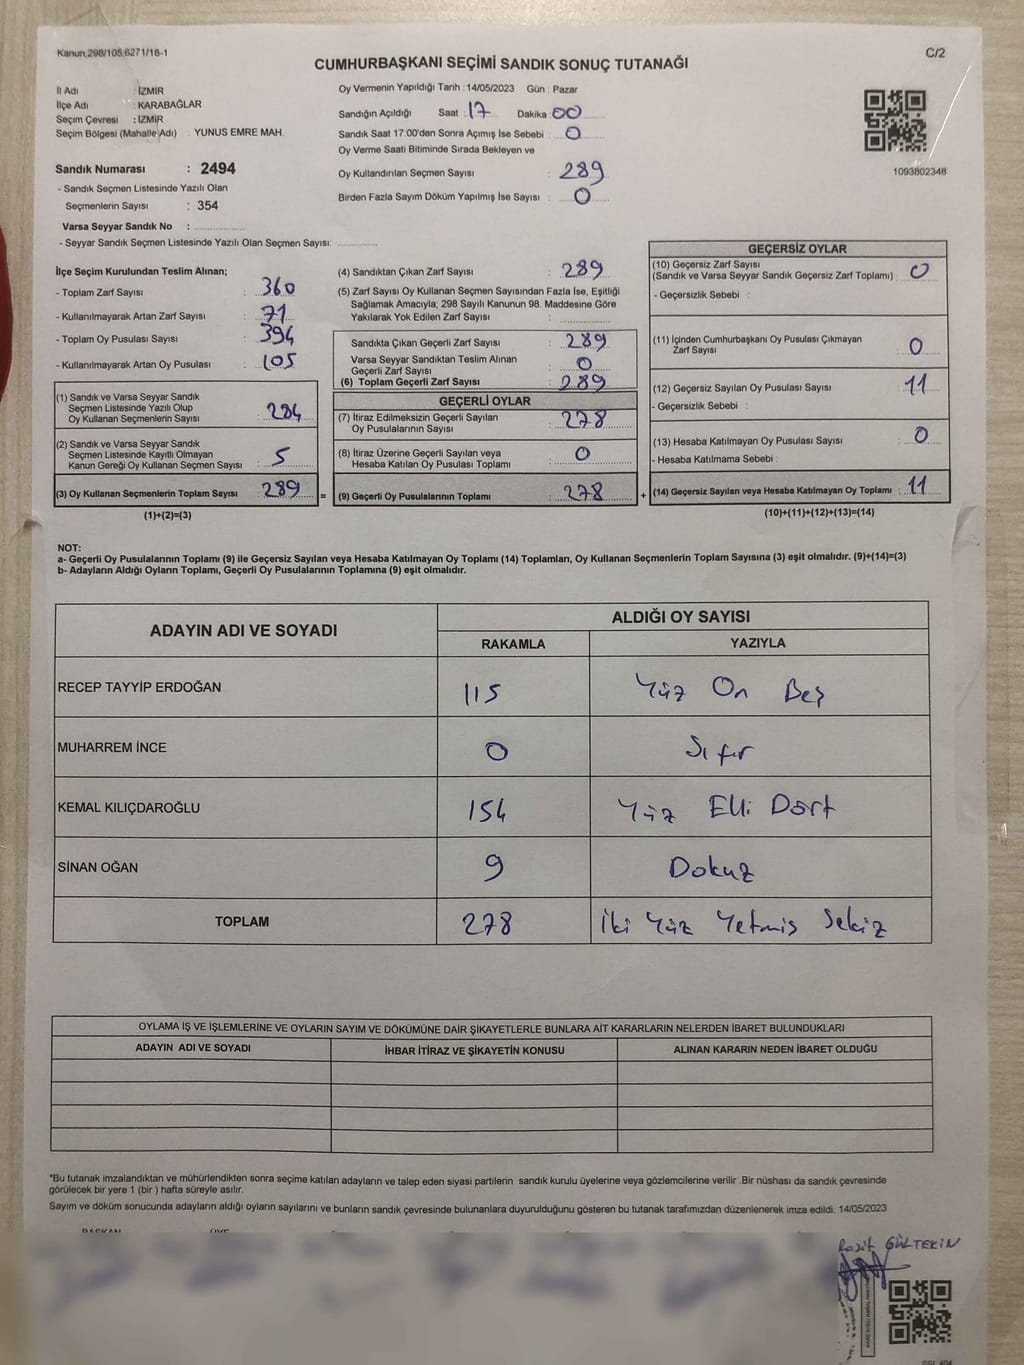 Kanun:298/105;6271/18-1
C/2
CUMHURBAŞKANI SEÇİMİ SANDIK SONUÇ TUTANAĞI
İl Adı : İZMİR
İlçe Adı : KARABAĞLAR
Seçim Çevresi : İZMİR
Seçim Bölgesi (Mahalle Adı) : YUNUS EMRE MAH.
Sandık Numarası : 2494
- Sandık Seçmen Listesinde Yazılı Olan
Seçmenlerin Sayısı : 354
Varsa Seyyar Sandık No :
- Seyyar Sandık Seçmen Listesinde Yazılı Olan Seçmen Sayısı:
Oy Vermenin Yapıldığı Tarih : 14/05/2023 Gün : Pazar
Sandığın Açıldığı Saat : 17 Dakika 00
Sandık Saat 17:00'den Sonra Açımış İse Sebebi : 0
Oy Verme Saati Bitiminde Sırada Bekleyen ve
Oy Kullandırılan Seçmen Sayısı : 289
Birden Fazla Sayım Döküm Yapılmış İse Sayısı : 0
1093802348
İlçe Seçim Kurulundan Teslim Alınan;
- Toplam Zarf Sayısı : 360
- Kullanılmayarak Artan Zarf Sayısı : 71
- Toplam Oy Pusulası Sayısı : 394
- Kullanılmayarak Artan Oy Pusulası : 105
(1) Sandık ve Varsa Seyyar Sandık
Seçmen Listesinde Yazılı Olup
Oy Kullanan Seçmenlerin Sayısı : 284
(2) Sandık ve Varsa Seyyar Sandık
Seçmen Listesinde Kayıtlı Olmayan
Kanun Gereği Oy Kullanan Seçmen Sayısı : 5
(3) Oy Kullanan Seçmenlerin Toplam Sayısı : 289 =
(1)+(2)=(3)
(4) Sandıktan Çıkan Zarf Sayısı : 289
(5) Zarf Sayısı Oy Kullanan Seçmen Sayısından Fazla İse, Eşitliği
Sağlamak Amacıyla; 298 Sayılı Kanunun 98. Maddesine Göre
Yakılarak Yok Edilen Zarf Sayısı :
Sandıkta Çıkan Geçerli Zarf Sayısı : 289
Varsa Seyyar Sandıktan Teslim Alınan
Geçerli Zarf Sayısı : 0
(6) Toplam Geçerli Zarf Sayısı : 289
GEÇERLİ OYLAR
(7) İtiraz Edilmeksizin Geçerli Sayılan
Oy Pusulalarının Sayısı : 278
(8) İtiraz Üzerine Geçerli Sayılan veya
Hesaba Katılan Oy Pusulası Toplamı : 0
(9) Geçerli Oy Pusulalarının Toplamı : 278 +
GEÇERSİZ OYLAR
(10) Geçersiz Zarf Sayısı
(Sandık ve Varsa Seyyar Sandık Geçersiz Zarf Toplamı) : 0
- Geçersizlik Sebebi :
(11) İçinden Cumhurbaşkanı Oy Pusulası Çıkmayan
Zarf Sayısı : 0
(12) Geçersiz Sayılan Oy Pusulası Sayısı : 11
- Geçersizlik Sebebi :
(13) Hesaba Katılmayan Oy Pusulası Sayısı : 0
- Hesaba Katılmama Sebebi :
(14) Geçersiz Sayılan veya Hesaba Katılmayan Oy Toplamı : 11
(10)+(11)+(12)+(13)=(14)
NOT:
a- Geçerli Oy Pusulalarının Toplamı (9) ile Geçersiz Sayılan veya Hesaba Katılmayan Oy Toplamı (14) Toplamları, Oy Kullanan Seçmenlerin Toplam Sayısına (3) eşit olmalıdır. (9)+(14)=(3)
b- Adayların Aldığı Oyların Toplamı, Geçerli Oy Pusulalarının Toplamına (9) eşit olmalıdır.
ADAYIN ADI VE SOYADI
ALDIĞI OY SAYISI
RAKAMLA YAZIYLA
RECEP TAYYİP ERDOĞAN 115 Yüz On Beş
MUHARREM İNCE 0 Sıfır
KEMAL KILIÇDAROĞLU 154 Yüz Elli Dört
SİNAN OĞAN 9 Dokuz
TOPLAM 278 İki Yüz Yetmis Sekiz
OYLAMA İŞ VE İŞLEMLERİNE VE OYLARIN SAYIM VE DÖKÜMÜNE DAİR ŞİKAYETLERLE BUNLARA AİT KARARLARIN NELERDEN İBARET BULUNDUKLARI
ADAYIN ADI VE SOYADI İHBAR İTİRAZ VE ŞİKAYETİN KONUSU ALINAN KARARIN NEDEN İBARET OLDUĞU
*Bu tutanak imzalandıktan ve mühürlendikten sonra seçime katılan adayların ve talep eden siyasi partilerin sandık kurulu üyelerine veya gözlemcilerine verilir .Bir nüshası da sandık çevresinde
görülecek bir yere 1 (bir ) hafta süreyle asılır.
Sayım ve döküm sonucunda adayların aldığı oyların sayılarını ve bunların sandık çevresinde bulunanlara duyurulduğunu gösteren bu tutanak tarafımızdan düzenlenerek imza edildi. 14/05/2023
BAŞKAN ÜYE
GÜLTEKİN